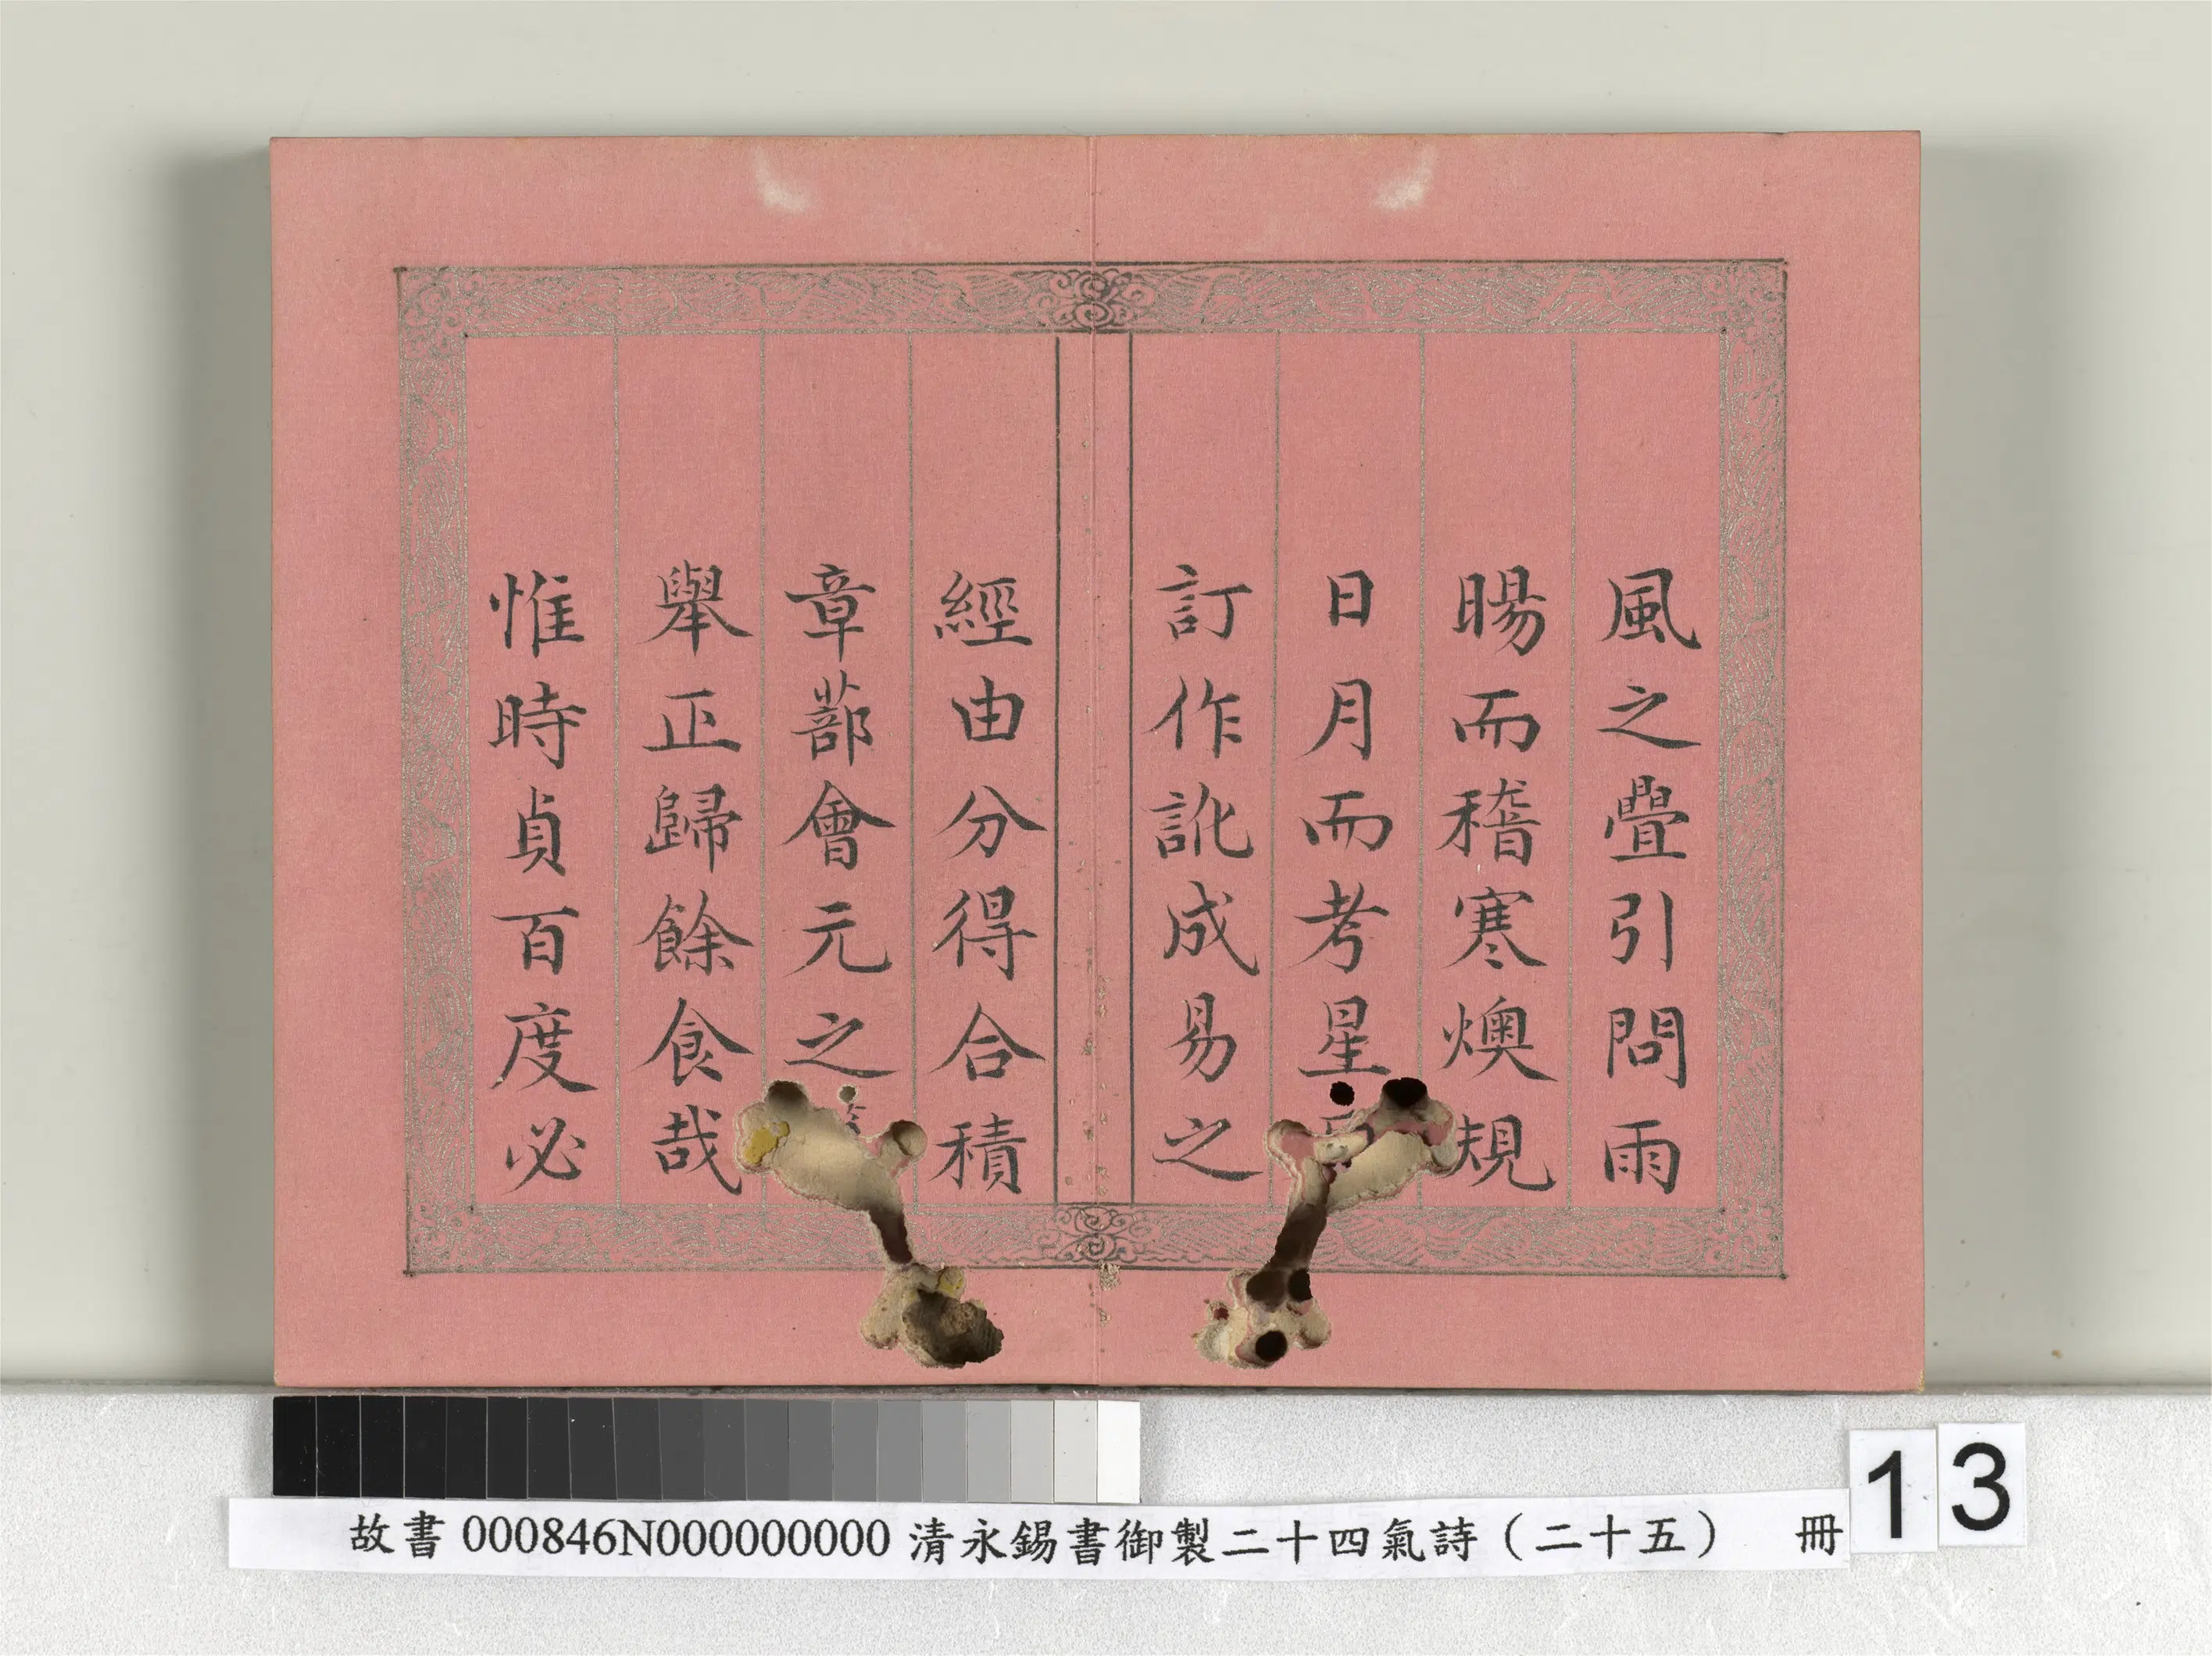 風之疊引問雨
暘而稽寒燠規
日月而考星
訂作訛成易之
經由分得合積
章蔀會元之
舉正歸餘食哉
惟時貞百度必
故書 000846N000000000 清永錫書御製二十四氣詩（二十五） 冊
13